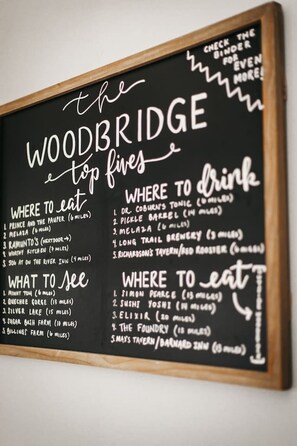 CHECK THE
BINDER
FOR
EVEN
MORE!
the
WOODBRIDGE
top fives
WHERE TO eat
1. PRINCE AND THE PAUPER (6 MILES)
2. MELAZA (6 MILES)
3. RAMUNTO'S (NEXT DOOR→)
4. WORTHY KITCHEN (9 MILES)
5. 506 AT ON THE RIVER INN (4 MILES)
WHERE TO drink
1. DR. COBURN'S TONIC (6 MILES)
2. PICKLE BARREL (14 MILES)
3. MELAZA (6 MILES)
4. LONG TRAIL BREWERY (3 MILES)
5. RICHARDSON'S TAVERN/RED ROOSTER (6 MILES)
WHAT TO see
1. MOUNT TOM (6 MILES)
2. QUECHEE GORGE (13 MILES)
3. SILVER LAKE (15 MILES)
4. SUGAR BUSH FARM (12 MILES)
5. BILLINGS FARM (6 MILES)
WHERE TO eat
1. SIMON PEARCE (13 MILES)
2. SUSHI YOSHI (14 MILES)
3. ELIXIR (20 MILES)
4. THE FOUNDRY (13 MILES)
5. MAX'S TAVERN/BARNARD INN (15 MILES)